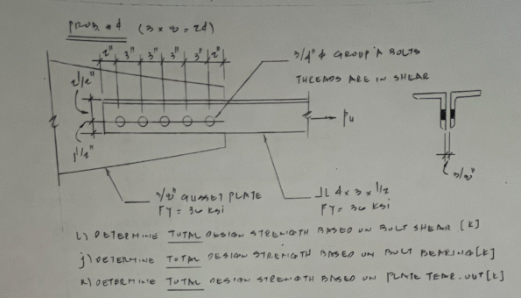 PROB #4 (3 x 8 = 24)
2" 3" 3" 3" 3" 2"
3/4" φ GROUP A BOLTS
THREADS ARE IN SHEAR
2 1/2"
1 1/2"
Pu
GUSSET PLATE
FY = 36 KSI
JL 4 x 3 x 1/2
FY = 36 KSI
3/8"
i) DETERMINE TOTAL DESIGN STRENGTH BASED ON BOLT SHEAR [K]
j) DETERMINE TOTAL DESIGN STRENGTH BASED ON BOLT BEARING [K]
K) DETERMINE TOTAL DESIGN STRENGTH BASED ON PLATE TEAR-OUT [K]